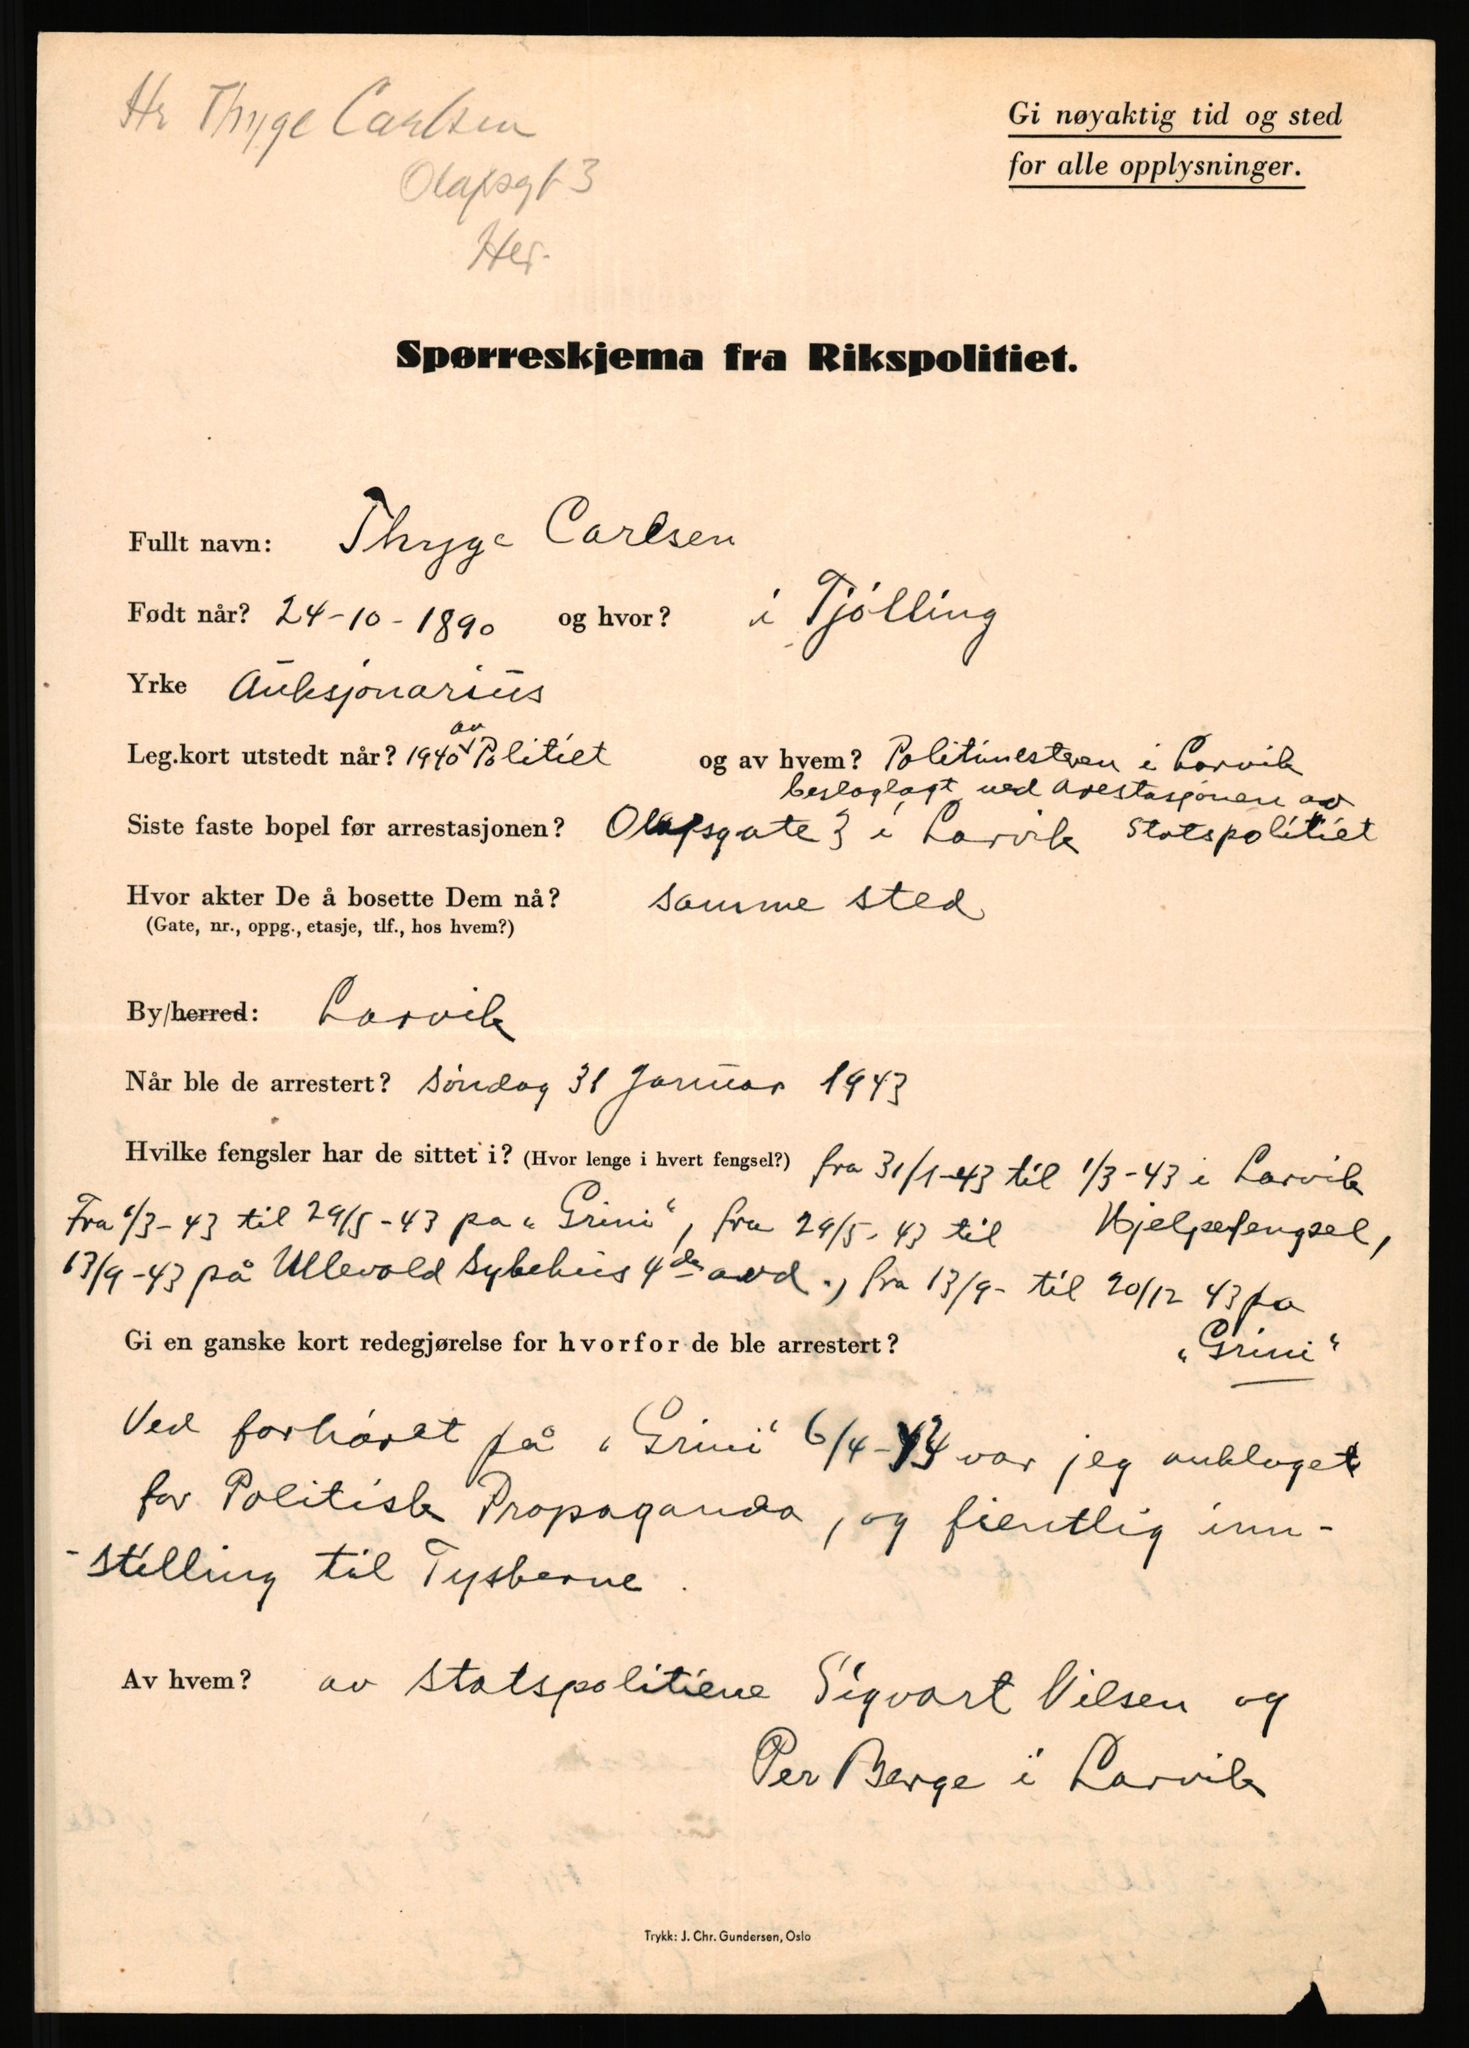 Hr Thyge Carlsen
Olafsgt 3
Her.
Gi nøyaktig tid og sted
for alle opplysninger.
Spørreskjema fra Rikspolitiet.
Fullt navn: Thyge Carlsen
Født når? 24-10-1890 og hvor? i Tjölling
Yrke Auksjonarius
av
Leg.kort utstedt når? 1940 Politiet og av hvem? Politimesteren i Larvik
beslaglagt ved arestasjonen av
Siste faste bopel før arrestasjonen? Olafsgate 3 i Larvik Statspolitiet
Hvor akter De å bosette Dem nå? samme sted
(Gate, nr., oppg., etasje, tlf., hos hvem?)
By/herred: Larvik
Når ble de arrestert? söndag 31 Januar 1943
Hvilke fengsler har de sittet i? (Hvor lenge i hvert fengsel?) fra 31/1-43 til 1/3-43 i Larvik
Hjelpefengsel,
Fra 1/3-43 til 29/5-43 pa „Grini“, fra 29/5-43 til
13/9-43 på Ullevold Sykehus 4de avd., fra 13/9- til 20/12 43 pa
„Grini“
Gi en ganske kort redegjørelse for hvorfor de ble arrestert?
Ved forhöret på „Grini“ 6/4-43 var jeg anklaget
for Politisk Propaganda, og fientlig inn-
-stilling til Tyskerne.
Av hvem? av statspolitiene Sigvart Nilsen og
Per Berge i Larvik
Trykk: J. Chr. Gundersen, Oslo